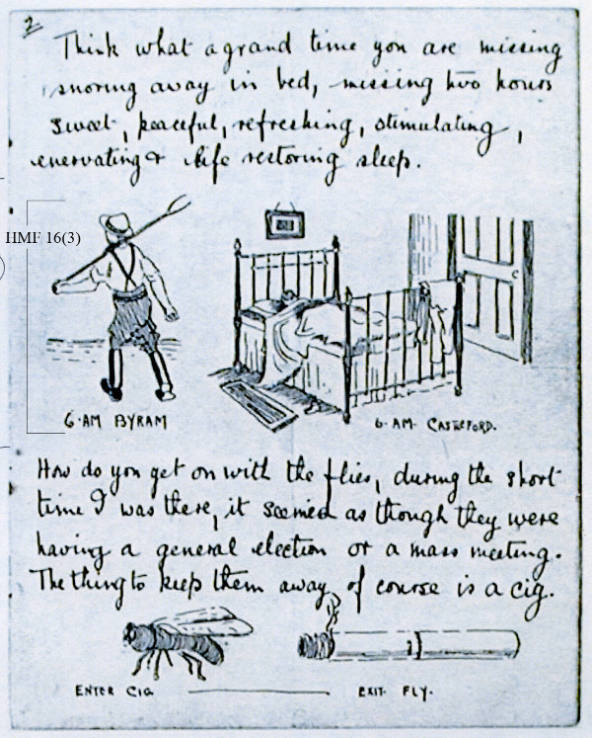 2
Think what a grand time you are missing
snoring away in bed, missing two hours
sweet, peaceful, refreshing, stimulating,
enervating & life restoring sleep.
HMF 16(3)
6·AM BYRAM
6·AM· CASTLEFORD.
How do you get on with the flies, during the short
time I was there, it seemed as though they were
having a general election or a mass meeting.
The thing to keep them away of course is a cig.
ENTER CIG.
EXIT FLY.